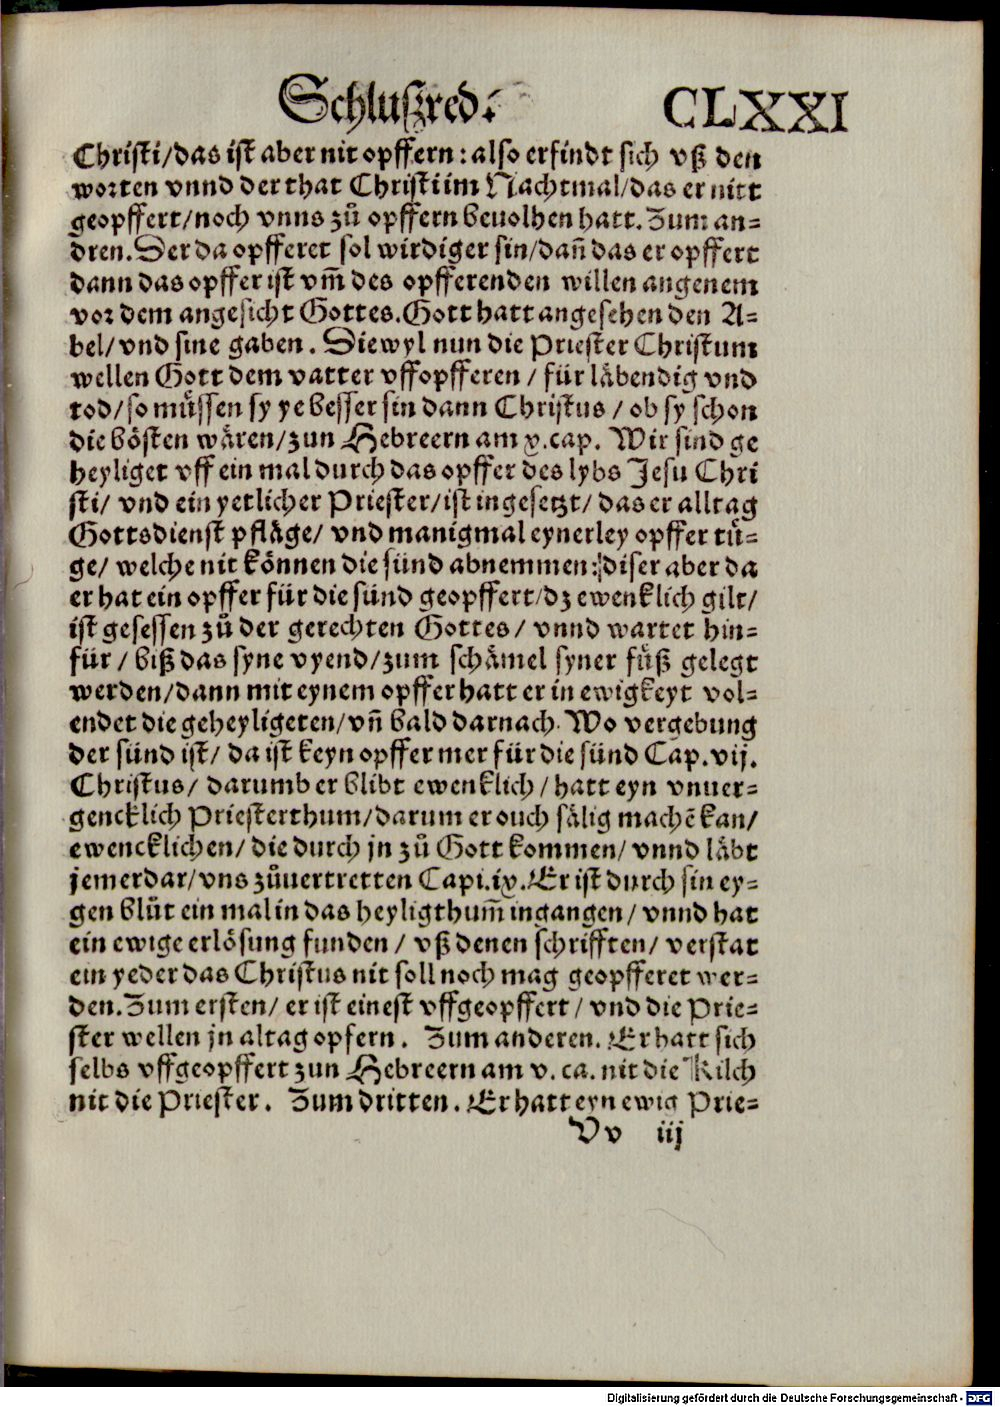 Schlußred. CLXXI
Christi/das ist aber nit opffern: also erfindt sich vß den
worten vnnd der that Christi im Nachtmal/das er nitt
geopffert/noch vnns zů opffern beuolhen hatt. Zum an-
dren. Der da opfferet sol wirdiger sin/dañ das er opffert
dann das opffer ist vm̃ des opfferenden willen angenem
vor dem angesicht Gottes. Gott hatt angesehen den A-
bel/vnd sine gaben. Diewyl nun die Priester Christum
wellen Gott dem vatter vffopfferen/ für läbendig vnd
tod/so müssen sy ye besser sin dann Christus/ ob sy schon
die bösten wären/zun Hebreern am x.cap. Wir sind ge
heyliget vff ein mal durch das opffer des lybs Jesu Chri
sti/ vnd ein yetlicher Priester/ist ingesetzt/ das er alltag
Gottsdienst pfläge/ vnd manigmal eynerley opffer tü-
ge/ welche nit können die sünd abnemmen: diser aber da
er hat ein opffer für die sünd geopffert/dz ewenklich gilt/
ist gesessen zů der gerechten Gottes/ vnnd wartet hin-
für/ biß das syne vyend/zum schämel syner füß gelegt
werden/dann mit eynem opffer hatt er in ewigkeyt vol-
endet die geheyligeten/vñ bald darnach. Wo vergebung
der sünd ist/ da ist keyn opffer mer für die sünd Cap.vij.
Christus/ darumb er blibt ewenklich/ hatt eyn vnuer-
gencklich Priesterthum/darum er ouch sälig machē kan/
ewencklichen/ die durch jn zů Gott kommen/ vnnd läbt
jemerdar/vns zůuertretten Capi.ix. Er ist durch sin ey-
gen blůt ein mal in das heyligthum̃ ingangen/ vnnd hat
ein ewige erlösung funden/ vß denen schrifften/ verstat
ein yeder das Christus nit soll noch mag geopfferet wer-
den. Zum ersten/ er ist einest vffgeopffert/ vnd die Prie-
ster wellen jn altag opfern. Zum anderen. Er hatt sich
selbs vffgeopffert zun Hebreern am v. ca. nit die Kilch
nit die Priester. Zum dritten. Er hatt eyn ewig Prie-
Vv iij
Digitalisierung gefördert durch die Deutsche Forschungsgemeinschaft - DFG